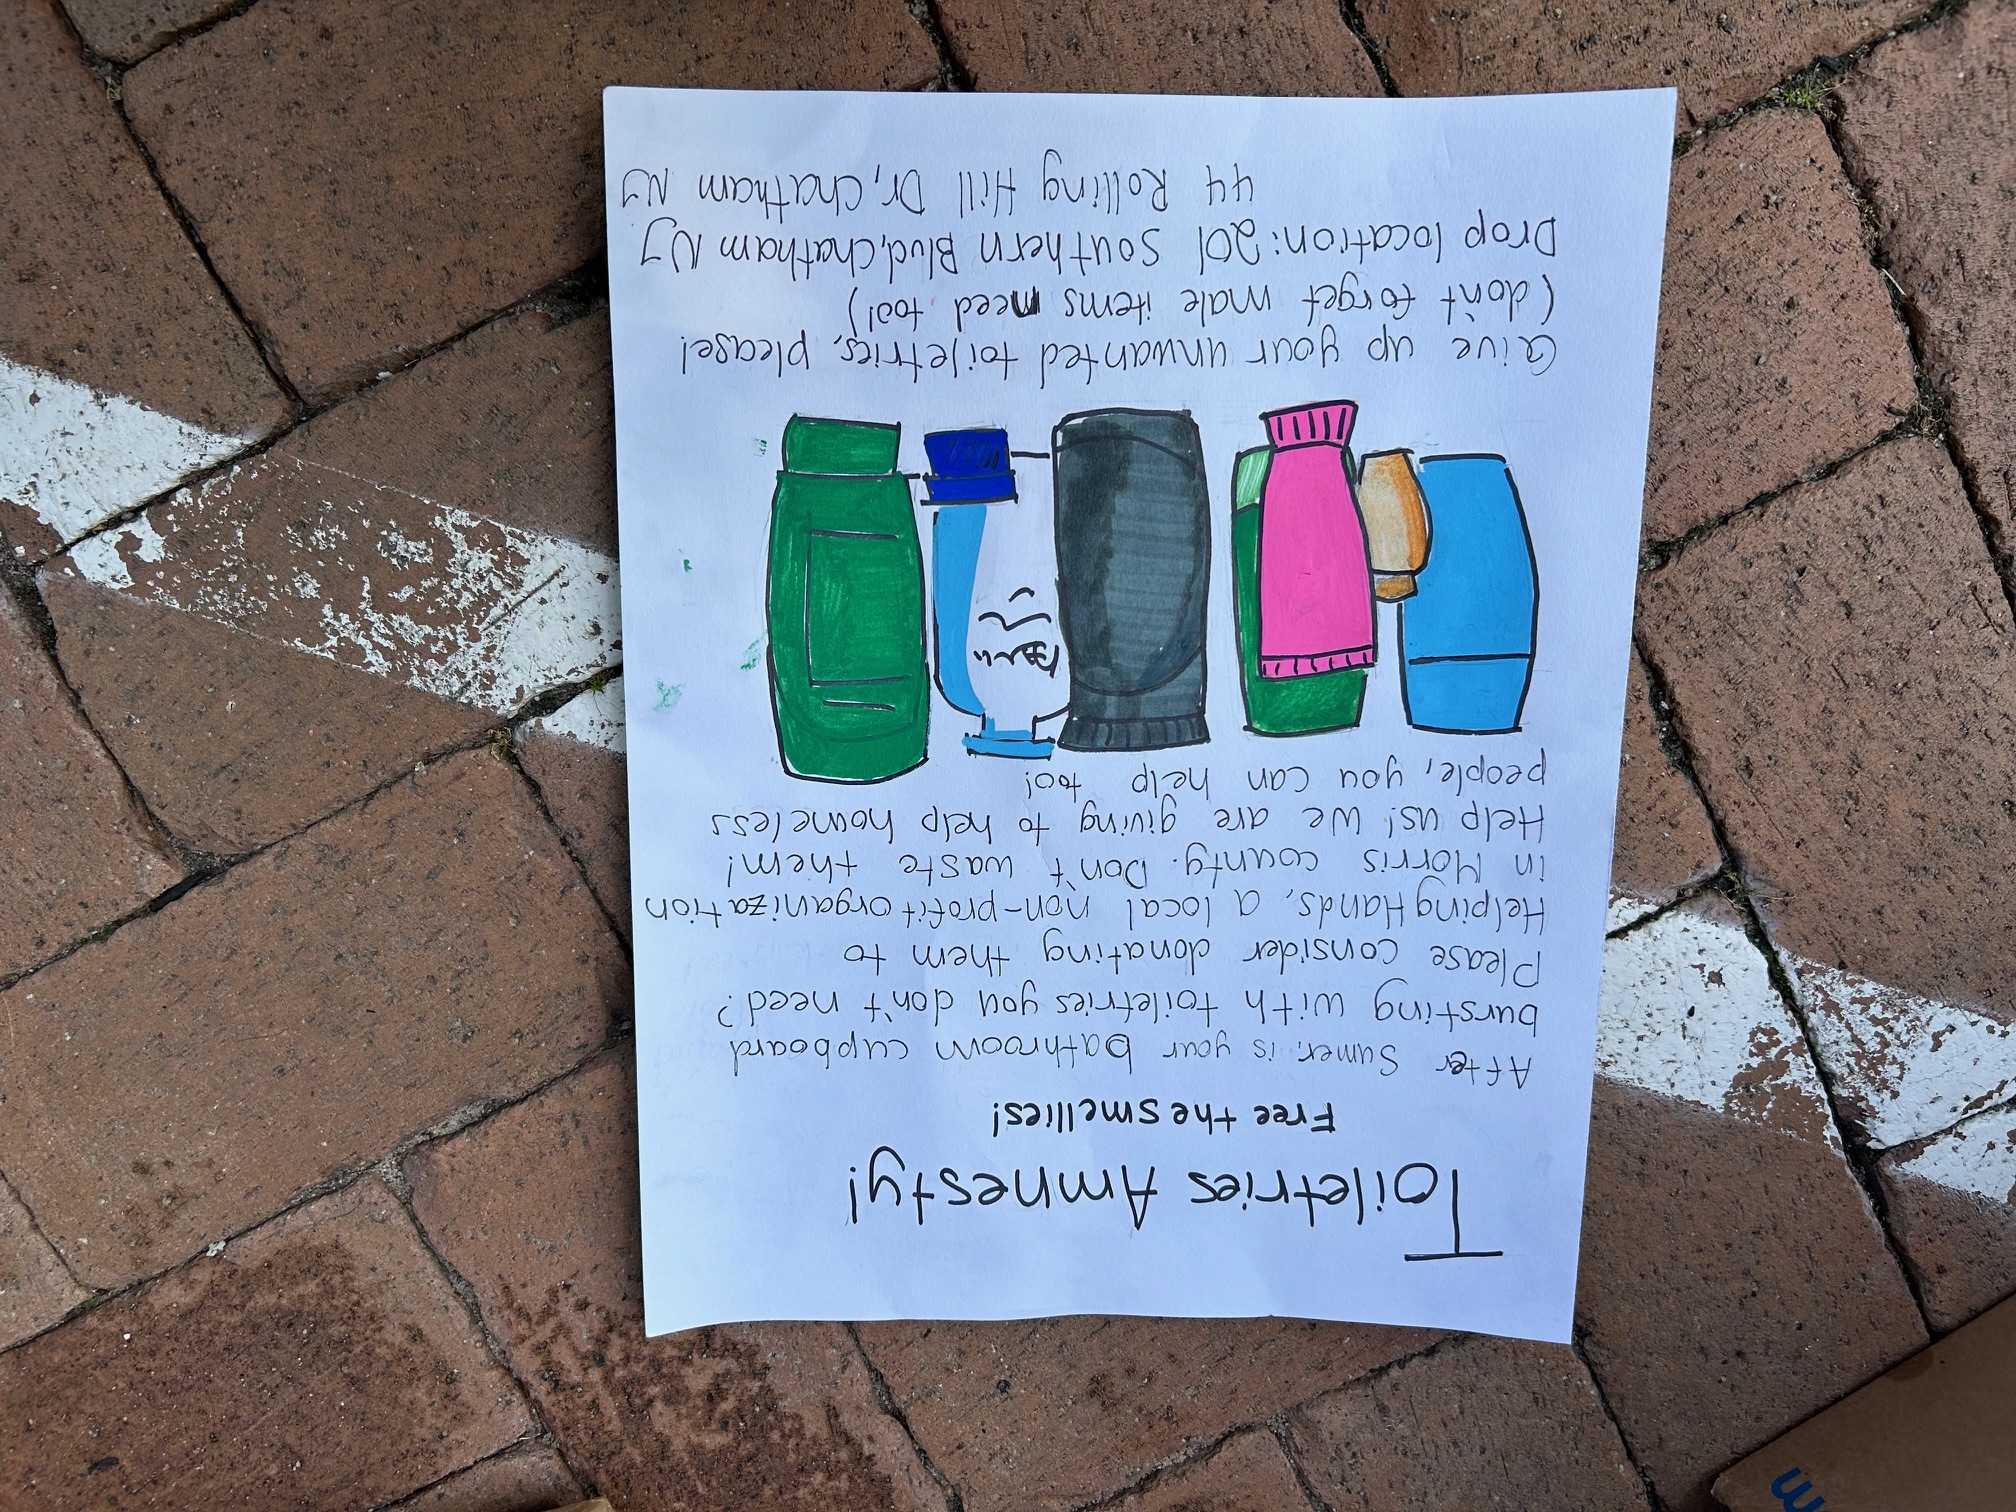 Toiletries Amnesty!
Free the smellies!
After Sumer, is your bathroom cupboard
bursting with toiletries you don't need?
Please consider donating them to
Helping Hands, a local non-profit organization
in Morris county. Don't waste them!
Help us! We are giving to help homeless
people, you can help too!
Give up your unwanted toiletries, please!
(don't forget male items need too!)
Drop location: 201 Southern Blvd, Chatham NJ
44 Rolling Hill Dr, Chatham NJ
m